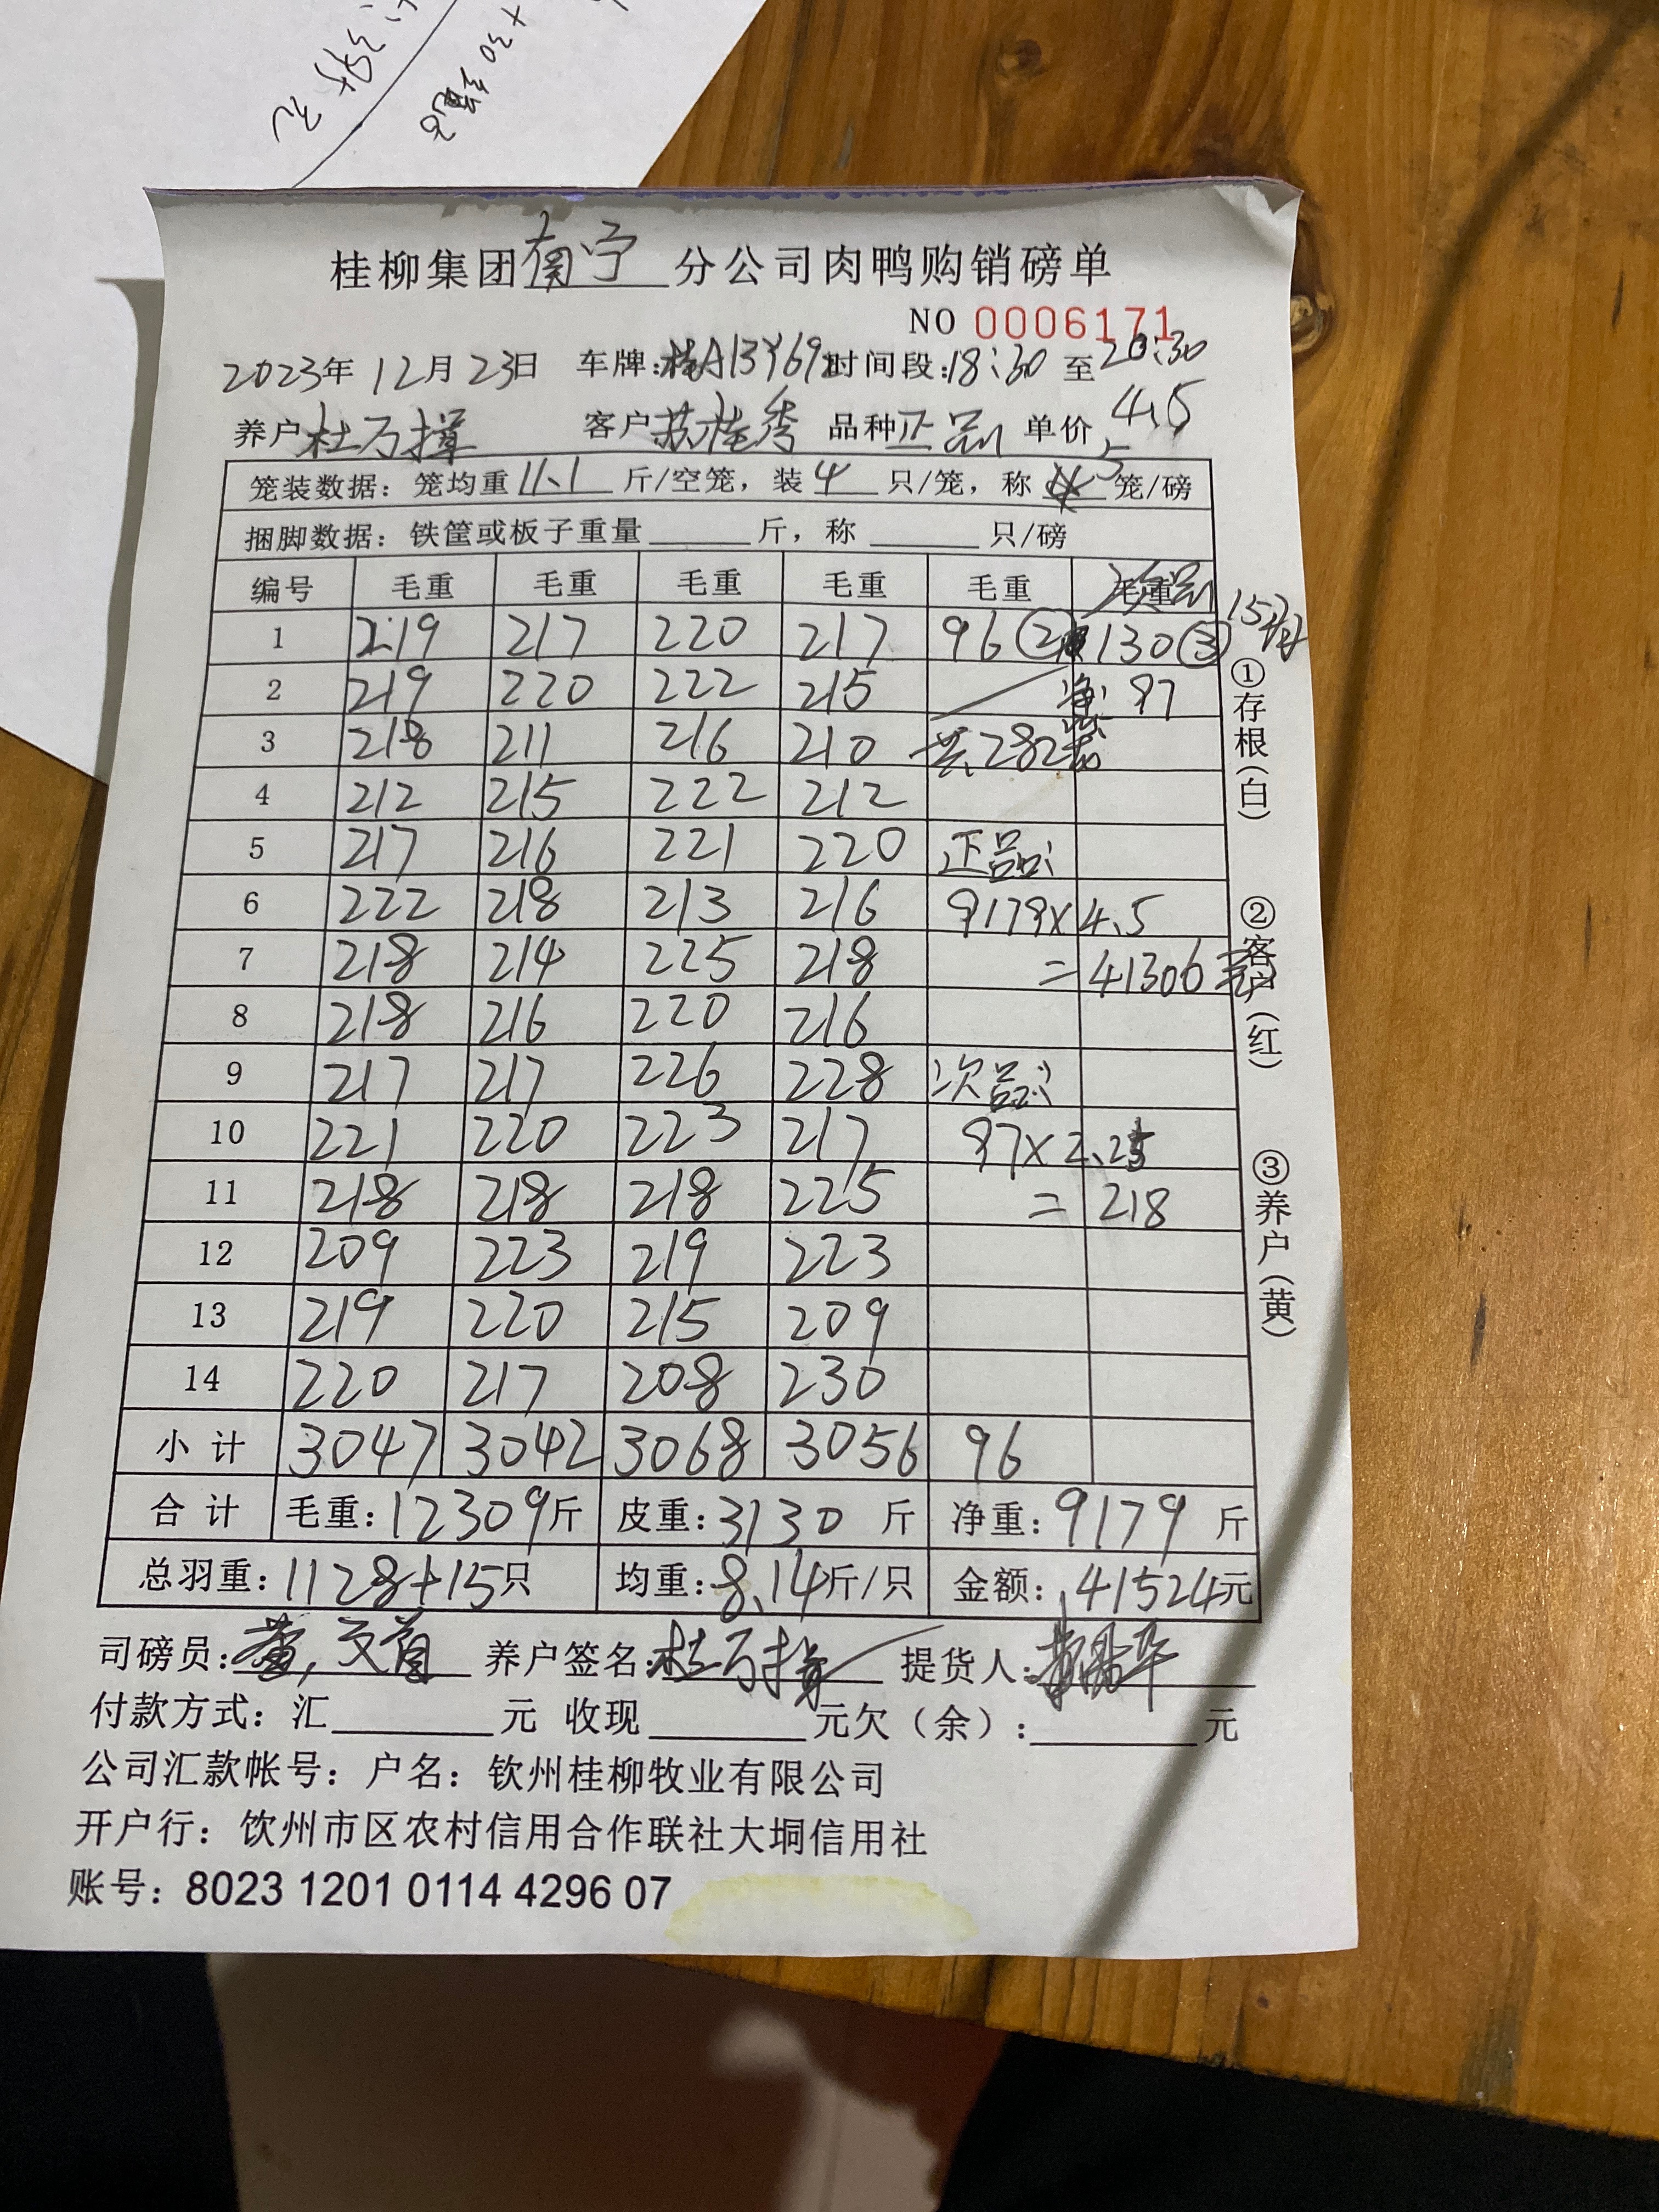 桂柳集团南宁分公司肉鸭购销磅单
NO 0006171
2023年 12月 23日 车牌:桂A13Y69 时间段:18:30 至 20:30
养户 杜万 客户 苏桂秀 品种 正品 单价 4.5
笼装数据: 笼均重 11.1 斤/空笼, 装 4 只/笼, 称 5 笼/磅
捆脚数据: 铁筐或板子重量 斤, 称 只/磅
编号 毛重 毛重 毛重 毛重 毛重 毛重 次品
1 219 217 220 217 96 ② 130 ③ 15只
2 219 220 222 215 净: 87
3 218 211 216 210 共282笼
4 212 215 222 212
5 217 216 221 220 正品:
6 222 218 213 216 9179×4.5
7 218 214 225 218 =41306元
8 218 216 220 216
9 217 217 226 228 次品:
10 221 220 223 217 97×2.25
11 218 218 218 225 =218
12 209 223 219 223
13 219 220 215 209
14 220 217 208 230
小计 3047 3042 3068 3056 96
合计 毛重: 12309斤 皮重: 3130 斤 净重: 9179 斤
总羽重: 1128+15只 均重: 8.14斤/只 金额: 41524元
司磅员: 黄, 养户签名: 杜万 提货人:
付款方式: 汇 元 收现 元欠(余): 元
公司汇款帐号: 户名: 钦州桂柳牧业有限公司
开户行: 饮州市区农村信用合作联社大垌信用社
账号: 8023 1201 0114 4296 07
①存根(白)
②客户(红)
③养户(黄)